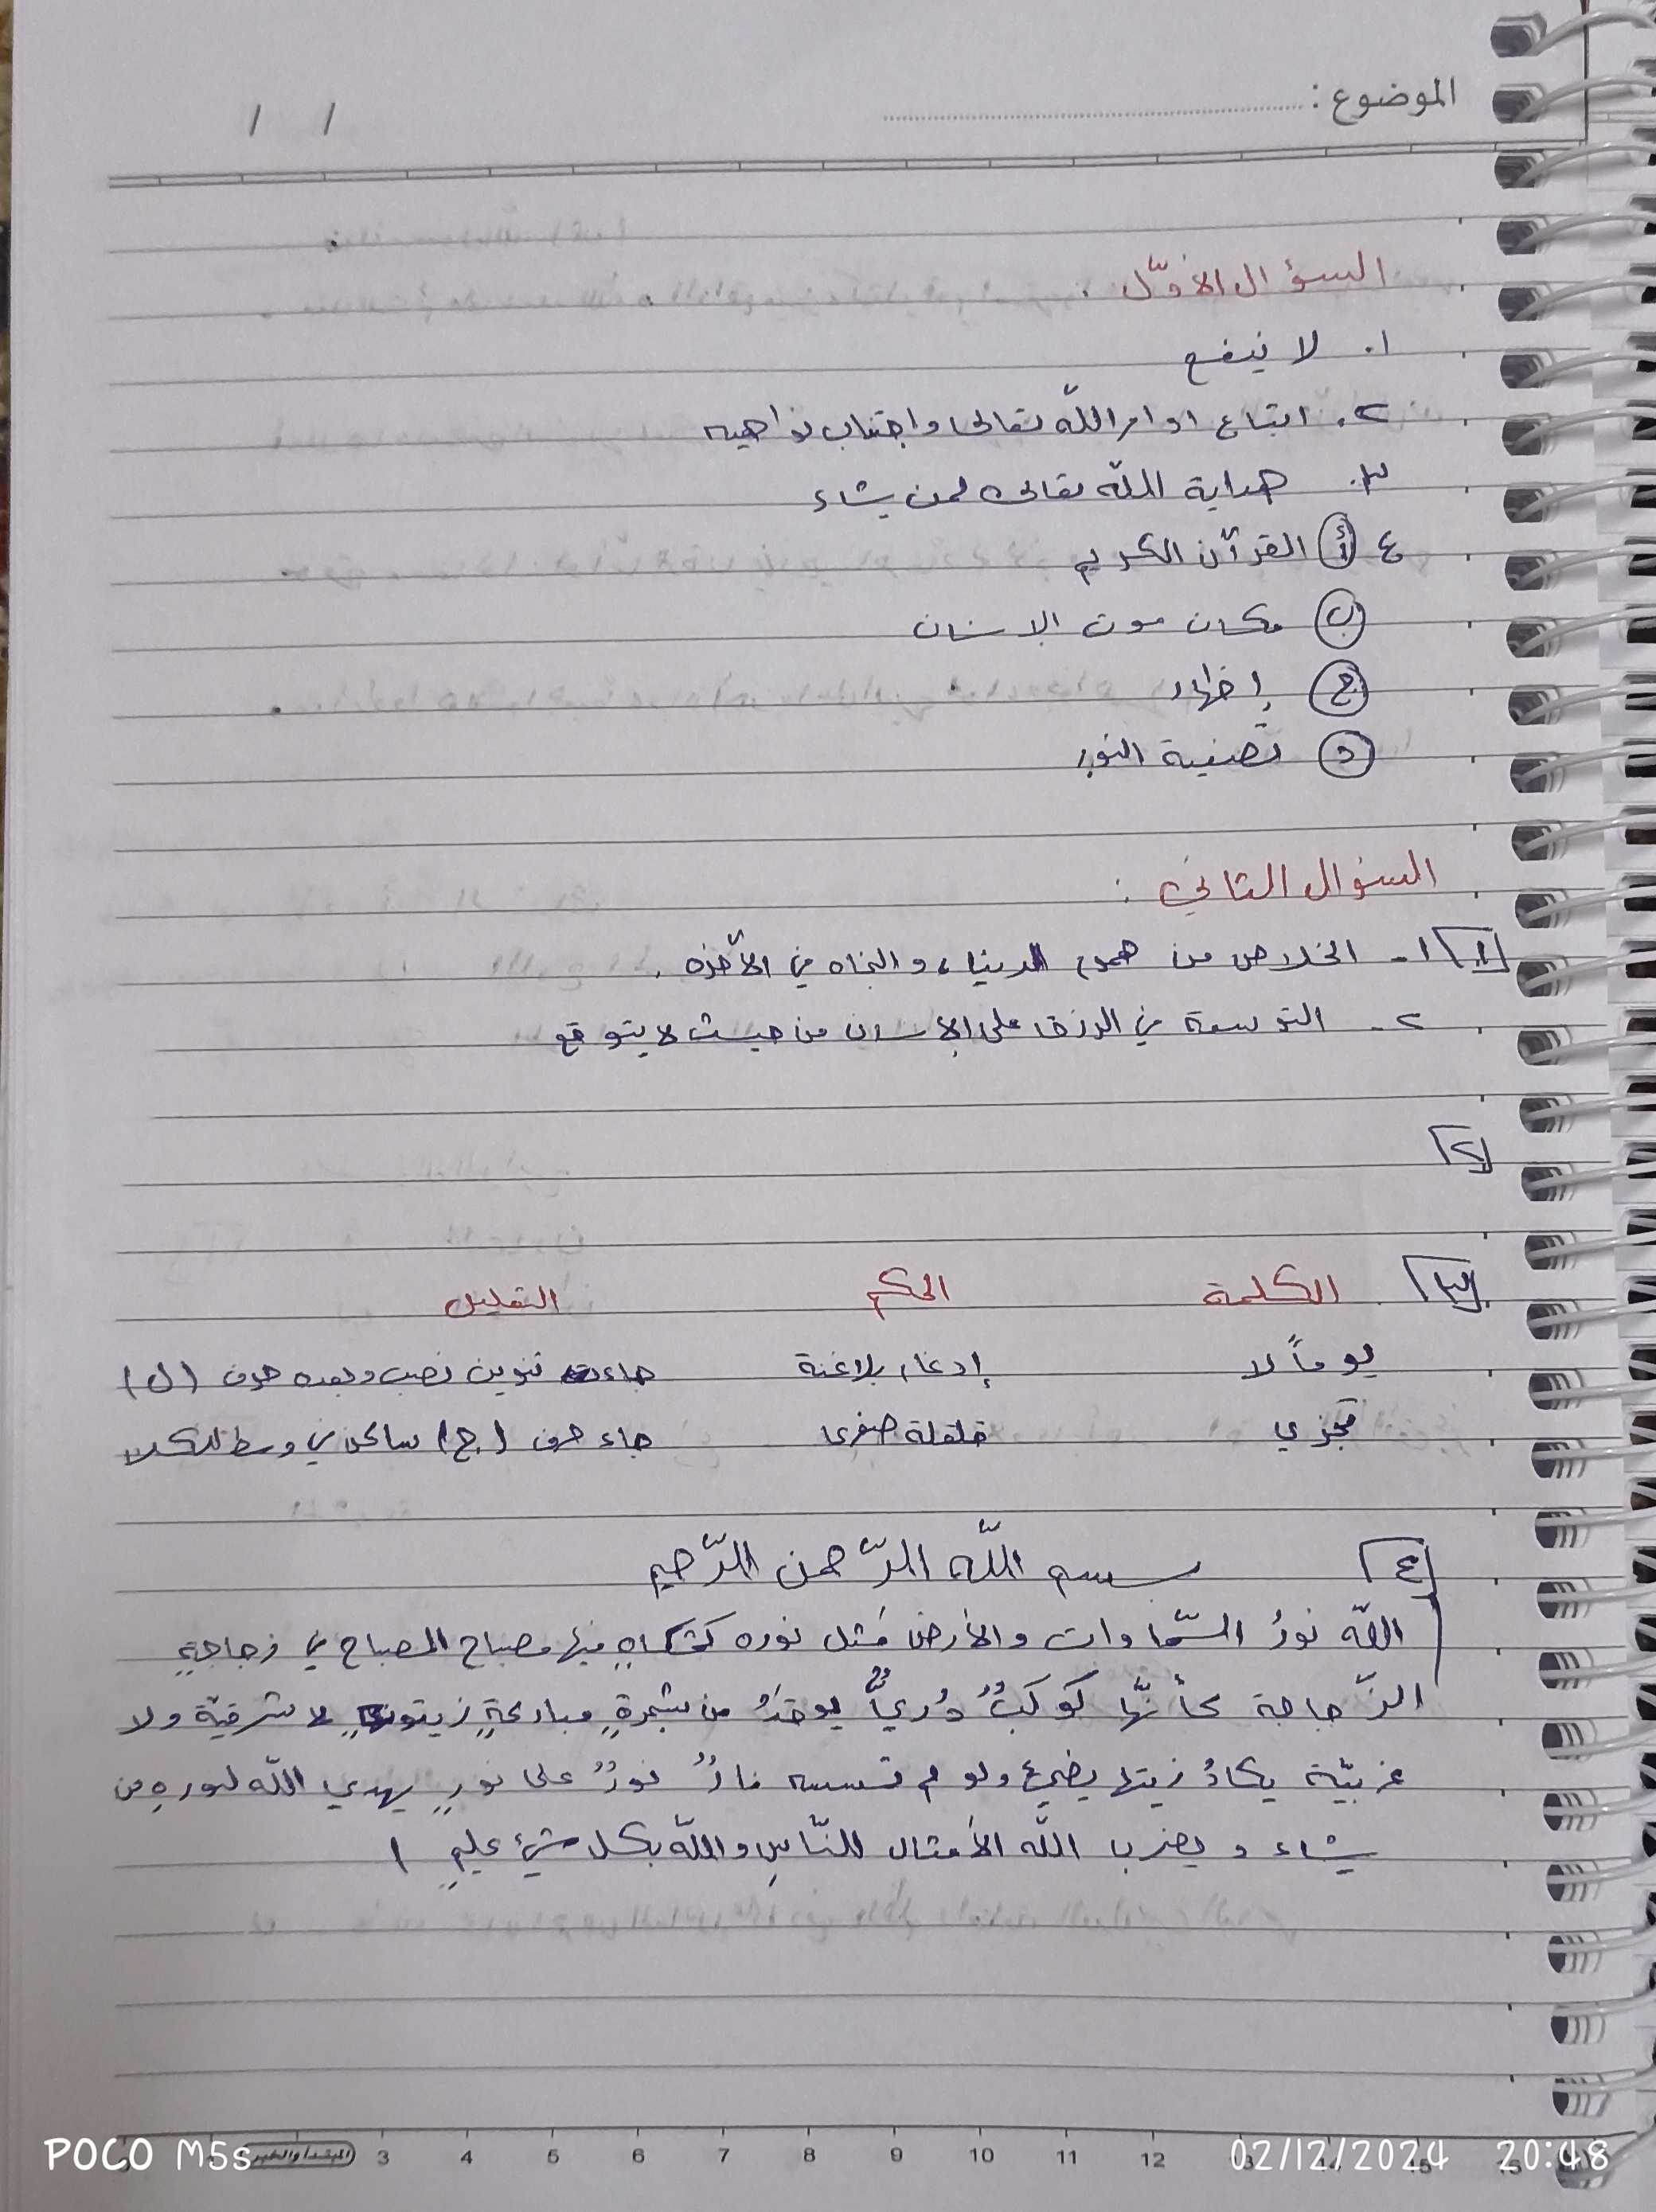 الموضوع :
/ /
السؤال الأوّل .
١. لا ينفع
٢. اتباع اوامر اللّه تعالى واجتناب نواهيه
٣. هداية اللّه تعالى لمن يشاء
٤ أ القرآن الكريم
ب مكان موت الانسان
ج إظهار
د تصفية النور
السؤال الثاني :
١ ١- الخلاص من هموم الدنيا، و النجاه في الآخره .
٢- التوسعة في الرزق على الإنسان من حيث لا يتوقع
٢
٣ الكلمة الحكم التعليل
يوماً لا إدغام بلاغنة جاء تنوين نصب وبعده حرف (ل)
تجزي قلقلة صغرى جاء حرف (ج) ساكن في وسط الكلا
٤ بسم اللّه الرّحمن الرّحيم
اللّه نورُ السّماوات والأرض مَثل نوره كمشكاهٍ فيها مصباح المصباح في زجاجةٍ
الزّجاجة كأنّها كوكبٌ دُريٌّ يوقدُ من شجرةٍ مباركةٍ زيتونةٍ لا شرقيّة ولا
غربيّة يكادُ زيتها يضيئ ولو لم تمسسه نارٌ نورٌ على نورٍ يهدي اللّه لنورهِ من
يشاء ويضرب اللّه الأمثال للنّاسِ واللّه بكل شيئ عليمٍ )
المبتدأ والخبر 3 4 5 6 7 8 9 10 11 12 13 14 15 16
POCO M5s 02/12/2024 20:48